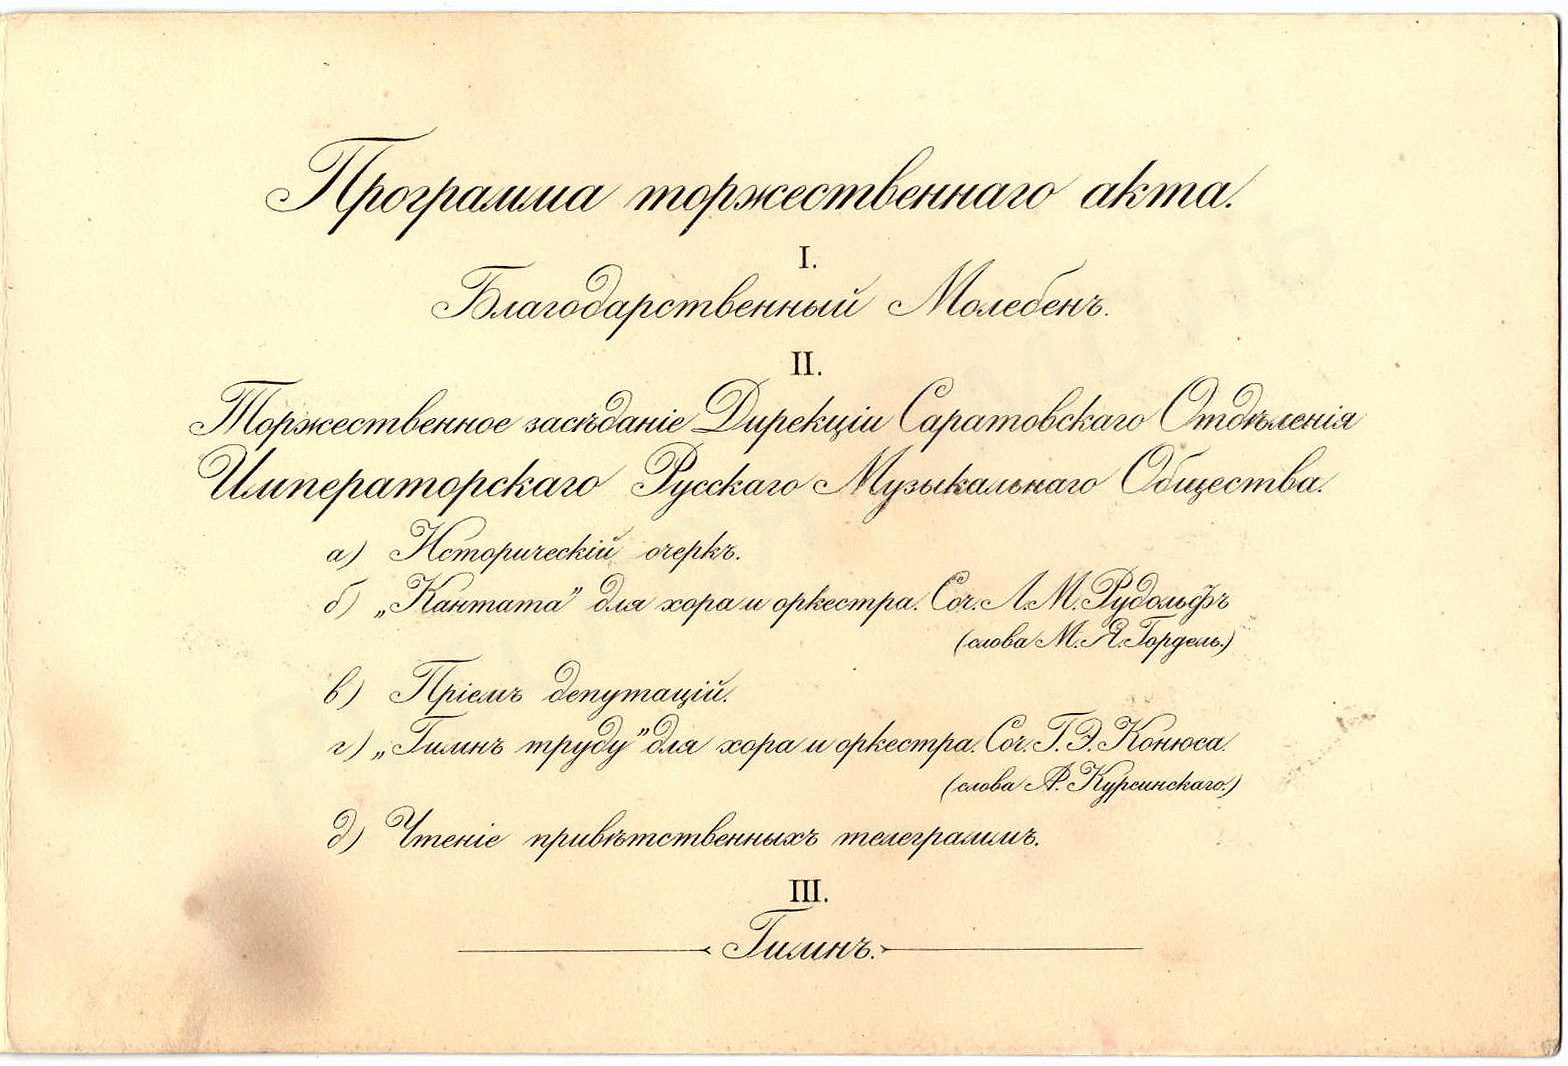 Программа торжественнаго акта.
I.
Благодарственный Молебенъ.
II.
Торжественное засѣданіе Дирекціи Саратовскаго Отдѣленія
Императорскаго Русскаго Музыкальнаго Общества.
а) Историческій очеркъ.
б) „Кантата” для хора и оркестра. Соч. Л. М. Рудольфъ
(слова М. Я. Гордель.)
в) Пріемъ депутацій.
г) „Гимнъ труду” для хора и оркестра. Соч. Г. Э. Конюса.
(слова А. Курсинскаго.)
д) Чтеніе привѣтственныхъ телеграммъ.
III.
Гимнъ.